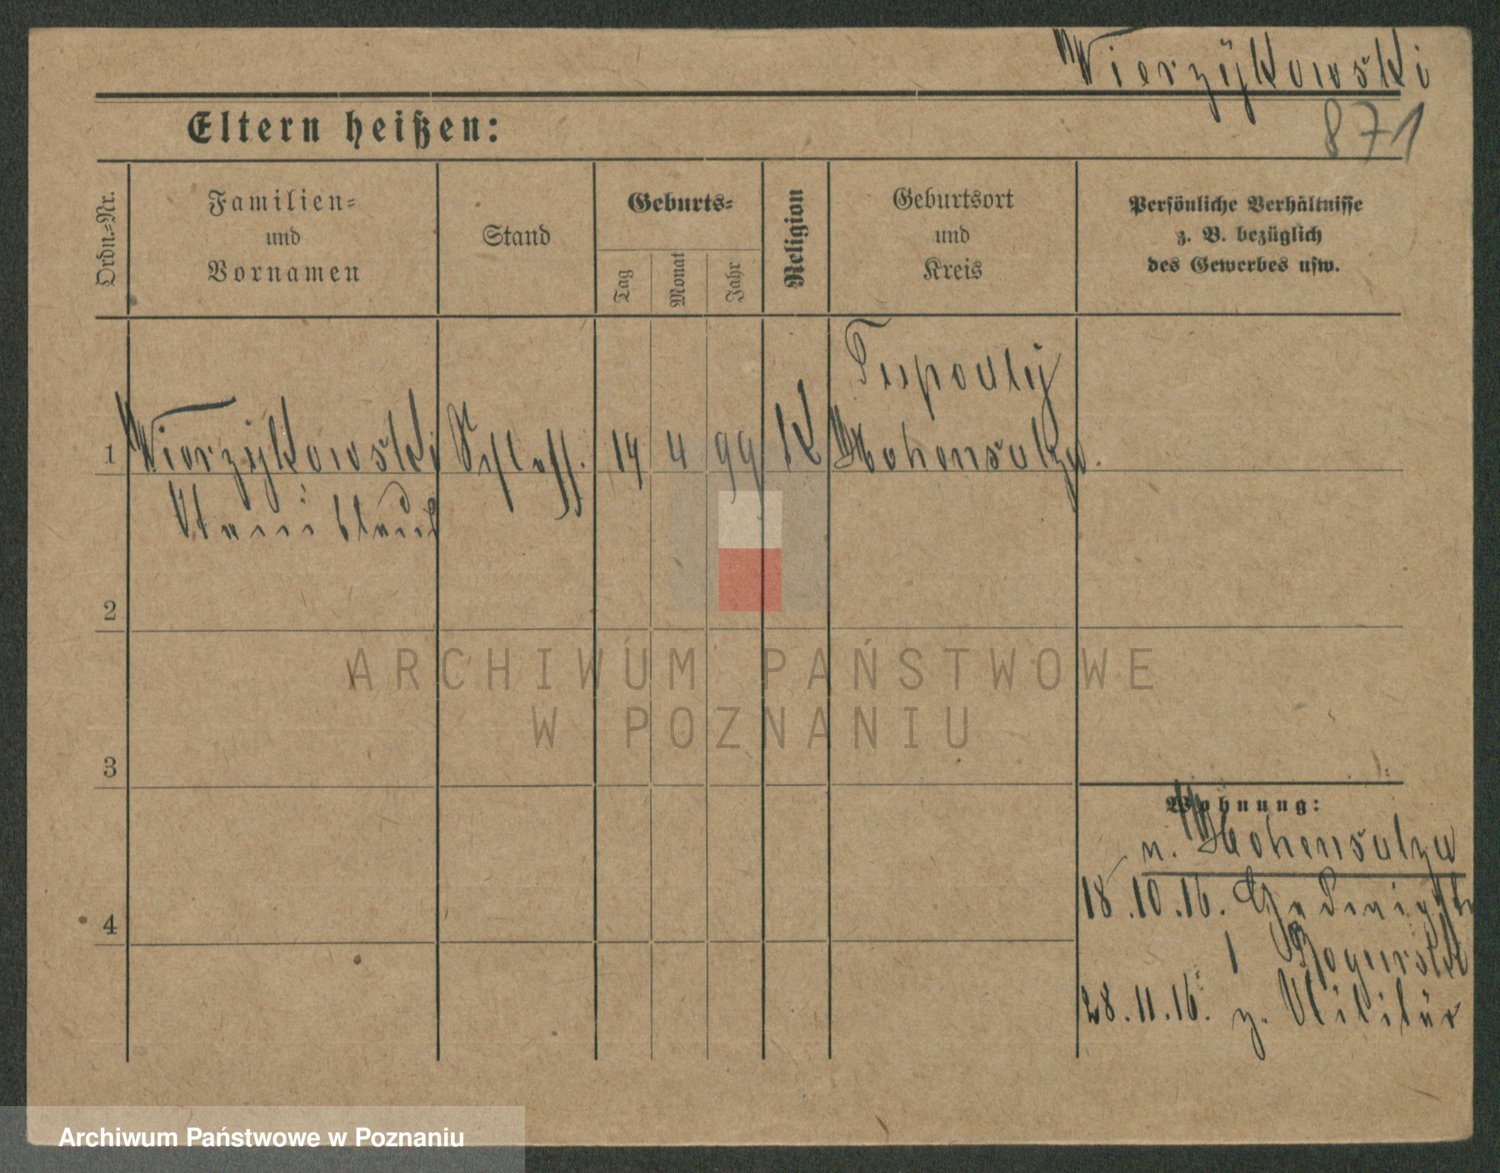 Wierzykowski
871
Eltern heißen:
Ordn.=Nr.
Familien=
und
Vornamen
Stand
Geburts=
Tag
Monat
Jahr
Religion
Geburtsort
und
Kreis
Persönliche Verhältnisse
z. B. bezüglich
des Gewerbes usw.
1
Wierzykowski
Schloss.
14
4
99
K
Hohensalza.
Stanislaus
2
3
4
ARCHIWUM PAŃSTWOWE
W POZNANIU
Wohnung:
n. Hohensalza
18.10.16.
28.11.16. z. Militär
Archiwum Państwowe w Poznaniu